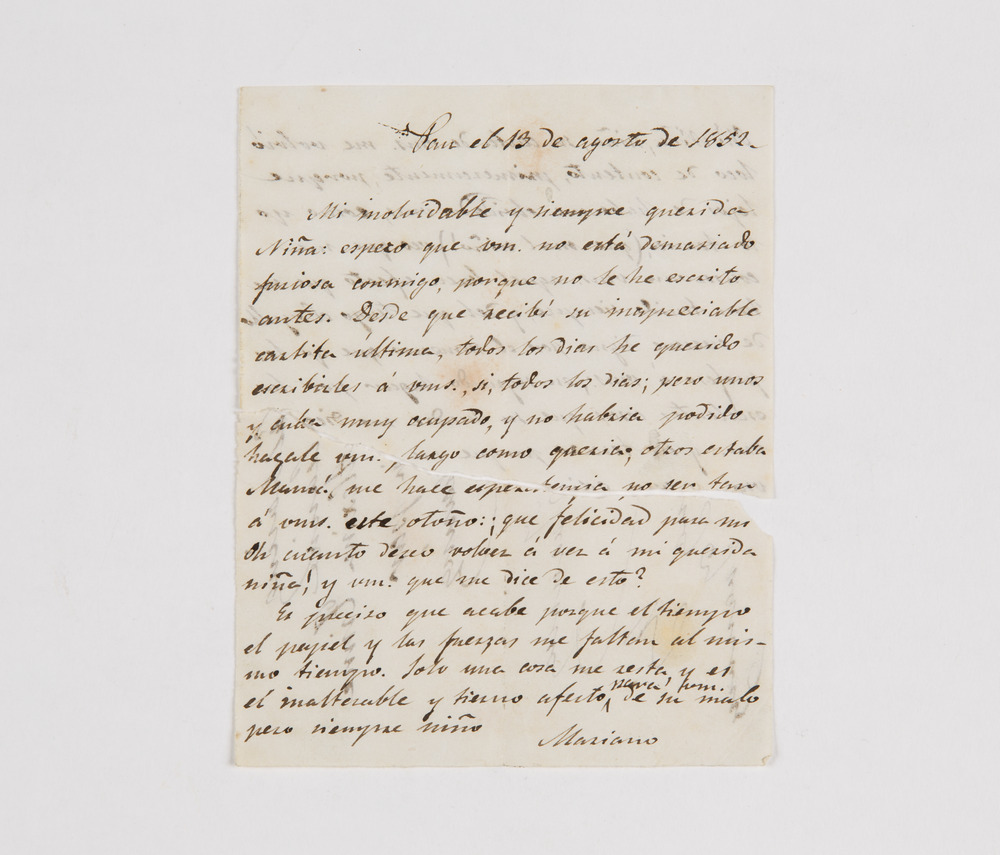 Pau el 13 de agosto de 1852.
Mi inolvidable y siempre querida
Niña: espero que vm. no está demasiado
furiosa conmigo, porque no le he escrito
antes. Desde que recibí su inapreciable
cartita última, todos los dias he querido
escribirles á vms., si, todos los dias; pero unos
muy ocupado, y no habria podido
vm., largo como queria; otros estaba
Mamá, me hace no ser tan
á vms. este otoño:; que felicidad para mi
Oh cuanto deseo volver á ver á mi querida
niña! y vm. que me dice de esto?
Es preciso que acabe porque el tiempo
el papel y las fuerzas me faltan al mis-
mo tiempo. Solo una cosa me resta y es
el inalterable y tierno afecto, para vm. de su malo
pero siempre niño
Mariano